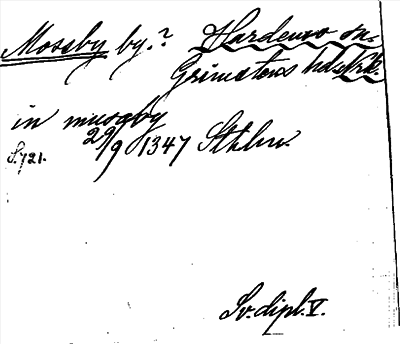 Mossby by.? Hardemo sn.
Grimstens hd. Nrk.
in musaby
29/9 1347 Sthlm.
S. 721.
Sv. dipl. V.